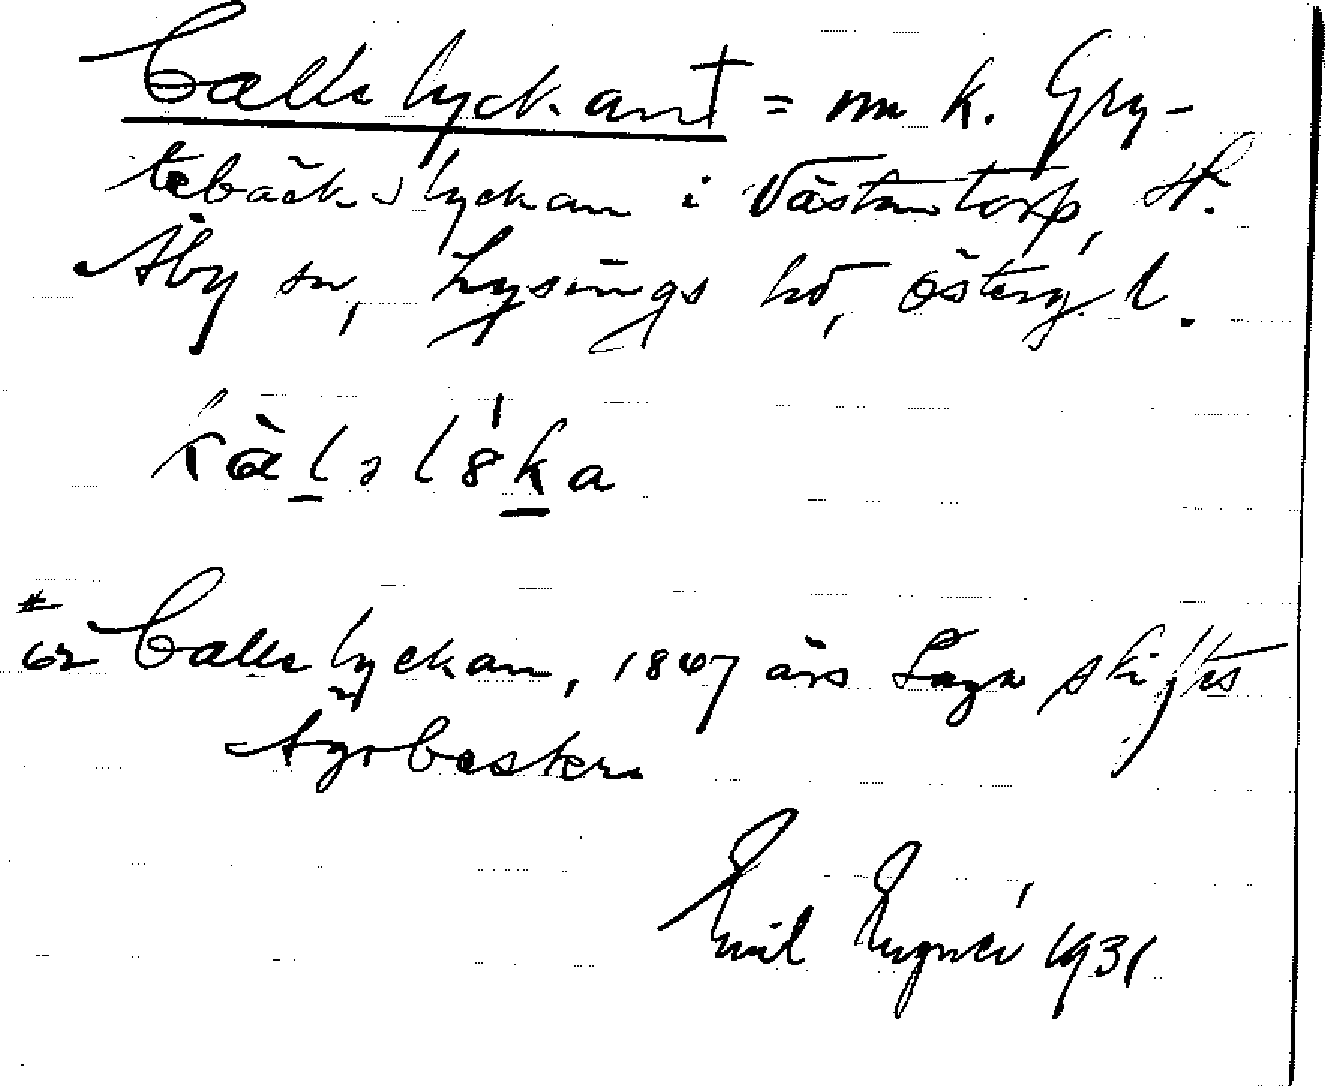 Callelyckan† = nu k. Gry-
tebäckslyckan i Västantorp, St.
Åby sn, Lysings hd, Östergl.
kàlə lꞌ8ka
# 62 Callelyckan, 1847 års Laga skiftes
Ägobeskr.
Emil 1931